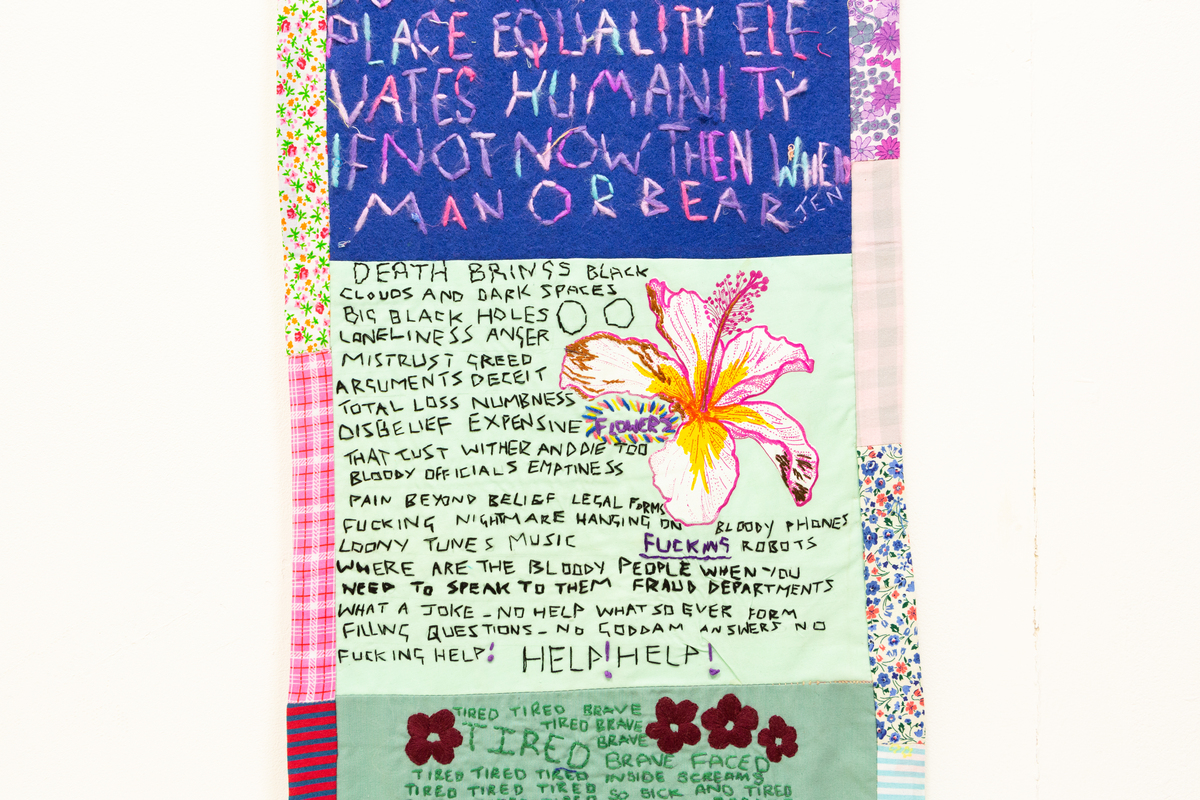 PLACE EQUALITY ELE
VATES HUMANITY
IF NOT NOW THEN WHEN
MAN OR BEAR JEN
DEATH BRINGS BLACK
CLOUDS AND DARK SPACES
BIG BLACK HOLES
LONELINESS ANGER
MISTRUST GREED
ARGUMENTS DECEIT
TOTAL LOSS NUMBNESS
DISBELIEF EXPENSIVE FLOWERS
THAT JUST WITHER AND DIE TOO
BLOODY OFFICIALS EMPTINESS
PAIN BEYOND BELIEF LEGAL FORMS
FUCKING NIGHTMARE HANGING ON BLOODY PHONES
LOONY TUNES MUSIC FUCKING ROBOTS
WHERE ARE THE BLOODY PEOPLE WHEN YOU
NEED TO SPEAK TO THEM FRAUD DEPARTMENTS
WHAT A JOKE - NO HELP WHAT SO EVER FORM
FILLING QUESTIONS - NO GODDAM ANSWERS NO
FUCKING HELP! HELP! HELP!
TIRED TIRED BRAVE
TIRED BRAVE
TIRED BRAVE
BRAVE FACED
TIRED TIRED TIRED INSIDE SCREAMS
TIRED TIRED TIRED SO SICK AND TIRED